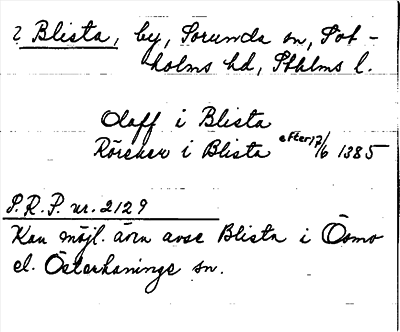 ? Blista, by, Sorunda sn, Sot-
holms hd, Sthlms l.
Olaff i Blista
Röreker i Blista efter 17/6 1385
S.R.P. nr. 2129
Kan möjl. även avse Blista i Ösmo
el. Österhaninge sn.